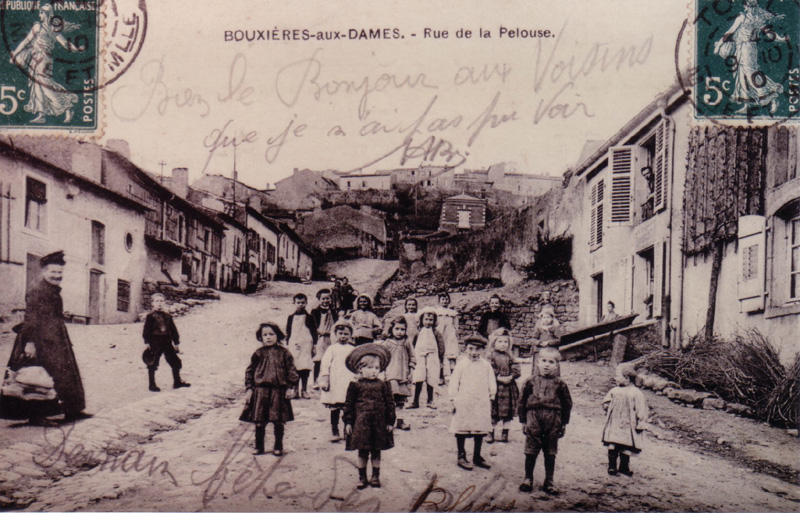 PUBLIQUE FRANÇAISE
BOUXIÈRES-aux-DAMES. - Rue de la Pelouse.
5c
POSTES
5c
POSTES
Bien le Bonjour aux Voisins
que je n'ai pas pu Voir
Demain fête des